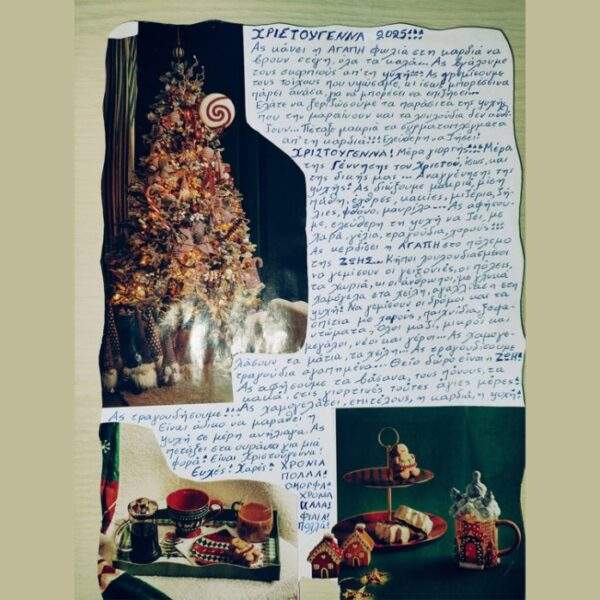 ΧΡΙΣΤΟΥΓΕΝΝΑ 2025!!!
Ας κάνει η ΑΓΑΠΗ φωλιά στη καρδιά να
βρουν στέγη, όλα τα καλά... Ας βγάλουμε
τους σκορπιούς απ'τη ψυχή!!! Ας γκρεμίσουμε
τους τοίχους που υψώσαμε, κι ίσως μπορέσει να
πάρει ανάσα, για να μπορέσει να επιζήσει...
Ελάτε να ξεριζώσουμε τα παράσιτα της ψυχής
που την μαραίνουν και τα λουλούδια δεν ανθί-
ζουν... Πετάξτε μακριά τα συρματοπλέγματα
απ'τη καρδιά!!! Ελεύθερη να ζήσει!
ΧΡΙΣΤΟΥΓΕΝΝΑ! Μέρα γιορτής!!! Μέρα
της Γέννησης του Χριστού, ίσως, και
της δικής μας... Αναγέννησης της
ψυχής! Ας διώξουμε μακριά, μίση
πάθη, έχθρες, κακίες, μιζέρια, ζή-
λιες, φθόνο, μαυρίλα... Ας αφήσου-
με, ελεύθερη τη ψυχή να ζει, με
χαρά, γέλια, τραγούδια, χορούς!!!
Ας κερδίσει η ΑΓΑΠΗ στο πόλεμο
της ΖΩΗΣ... Κήποι λουλουδιασμένοι
να γεμίσουν οι γειτονιές, οι πόλεις,
τα χωριά, κι οι άνθρωποι, με γλυκά
χαμόγελα στα χείλη, αγαλλίαση στη
ψυχή! Να γεμίσουν οι δρόμοι και τα
σπίτια με χορούς, παιχνίδια, ξεφα-
ντώματα, Όλοι μαζί, μικροί και
μεγάλοι, νέοι και γέροι... Ας χαμογε-
λάσουν τα μάτια, τα χείλη... Ας τραγουδήσουμε
τραγούδια αγαπημένα... Θείο δώρο είναι η ΖΩΗ!
Ας αφήσουμε τα βάσανα, τους πόνους, τα
κακά, στις γιορτινές τούτες άγιες μέρες!
Ας χαμογελάσει, επιτέλους, η καρδιά, η ψυχή!
Ας τραγουδήσουμε!!!
Είναι άδικο να μαραθεί η
ψυχή σε μέρη ανήλιαγα. Ας
πετάξει στα ουράνια για μιά
φορά! Είναι Χριστούγεννα!
Ευχές! Χαρές!
ΧΡΟΝΙΑ
ΠΟΛΛΑ!
ΟΜΟΡΦΑ!
ΧΡΟΝΙΑ
ΚΑΛΑ!
ΦΙΛΙΑ!
Πολλά!